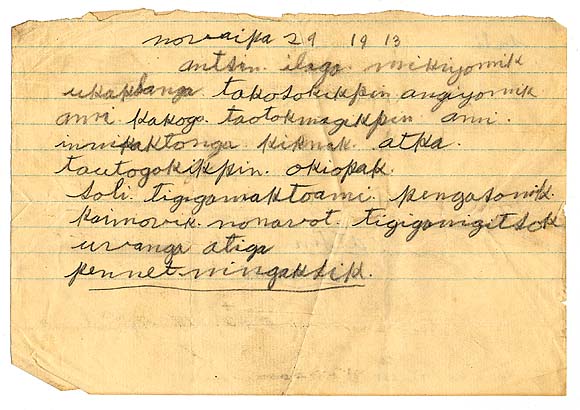 novaipa 29 1913
antsen ilaga mikiyomik
ukaktanga takosokikpin angiyomik
ama kakogo taotokmagikpin ami.
innikaktonga kiknak atka.
tautogokikpin. okiopak
soli tigigamaktoami. pengasonik.
kaimovik. nonavot. tigigamigitsok
uvanga atiga
pennet ningaksik.